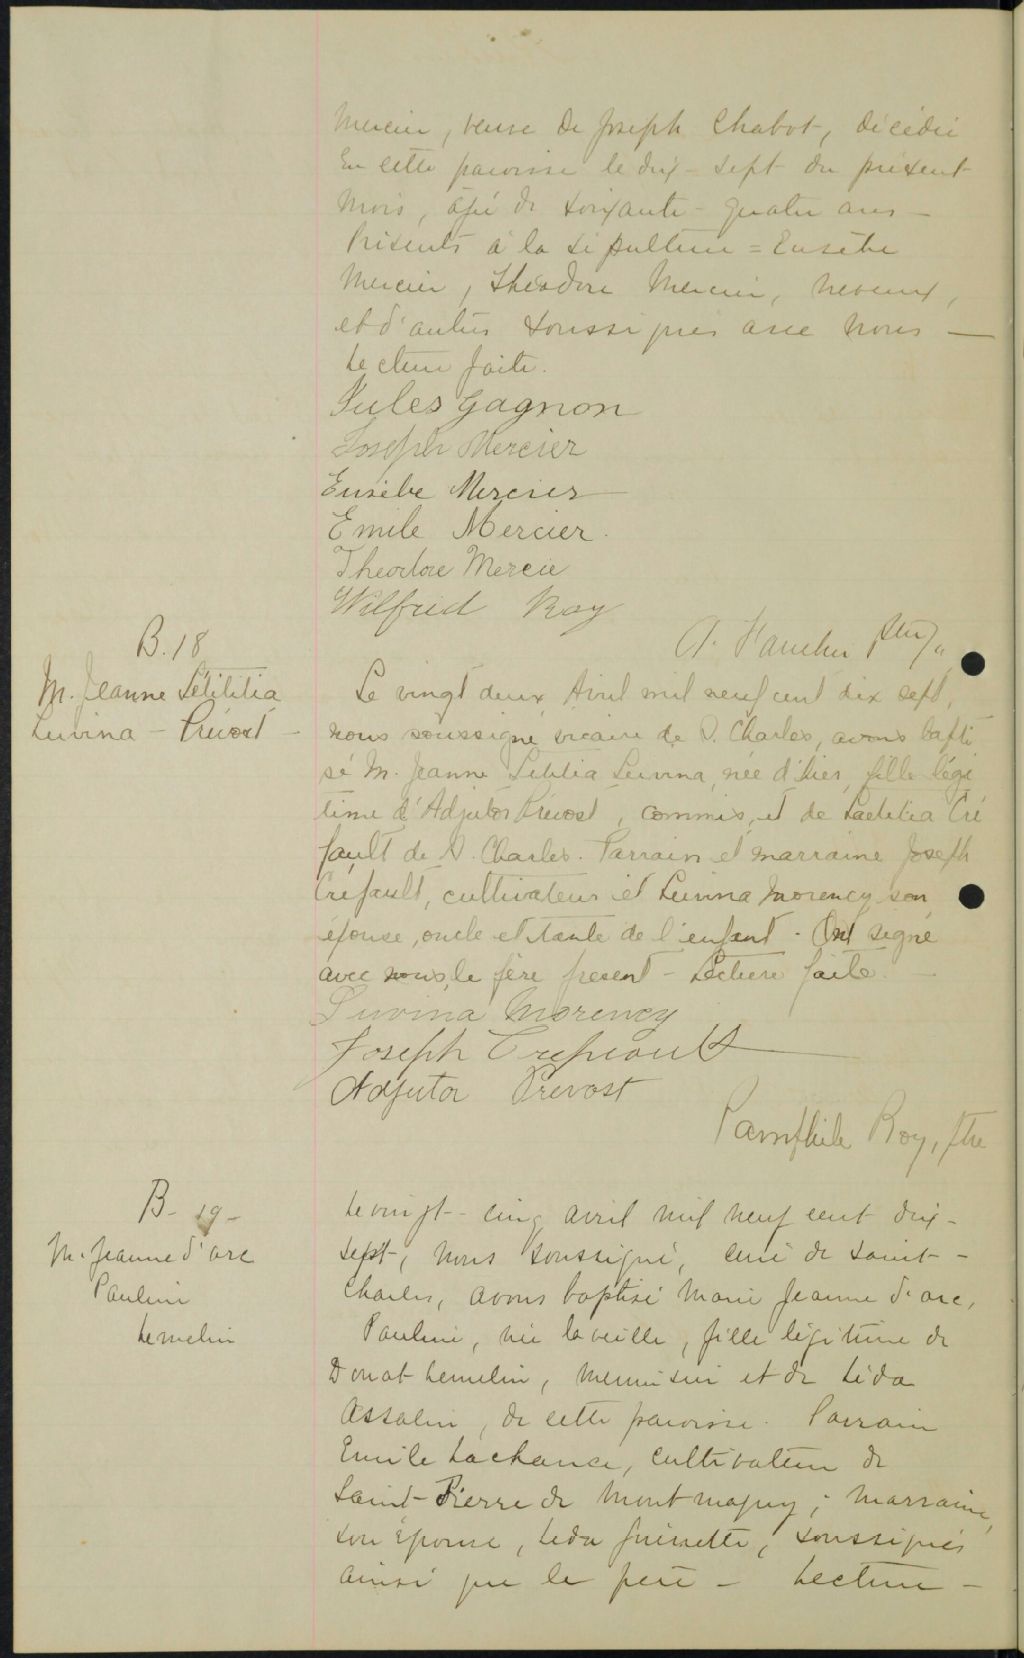 Mercier, veuve de Joseph Chabot, décédée
en cette paroisse le dix-sept du présent
mois, âgée de soixante-quatre ans -
Présents à la sépulture = Eusèbe
Mercier, Théodore Mercier, neveux,
et d'autres soussignés avec nous —
Lecture faite.
Jules Gagnon
Joseph Mercier
Eusèbe Mercier
Emile Mercier.
Theodore Mercie
Wilfrid Roy
A. Faucher ptre
B. 18
M. Jeanne Létititia
Luvina - Prévost -
Le vingt deux Avril mil neuf cent dix sept,
nous soussigné vicaire de S. Charles, avons bapti
sé M. Jeanne Letitia Luvina, née d'hier, fille légi
time d'Adjutor Prévost, commis, et de Laetitia Cré
fault de S. Charles. Parrain et marraine Joseph
Créfault, cultivateur et Luvina Morency son
épouse, oncle et tante de l'enfant. Ont signé
avec nous, le père présent - Lecture faite. -
Luvina Morency
Joseph Crepeault
Adjutor Prevost
Pamphile Roy, ptre
B- 19-
M. Jeanne d'arc
Pauline
Lemelin
Le vingt-cinq avril mil neuf cent dix-
sept, nous soussigné, curé de Saint-
Charles, avons baptisé Marie Jeanne d'arc,
Pauline, née la veille, fille légitime de
Donat Lemelin, menuisier et de Léda
Asselin, de cette paroisse. Parrain
Emile Lachance, cultivateur de
Saint-Pierre de Montmagny; marraine,
son épouse, Léda soussignés
ainsi que le père - Lecture -